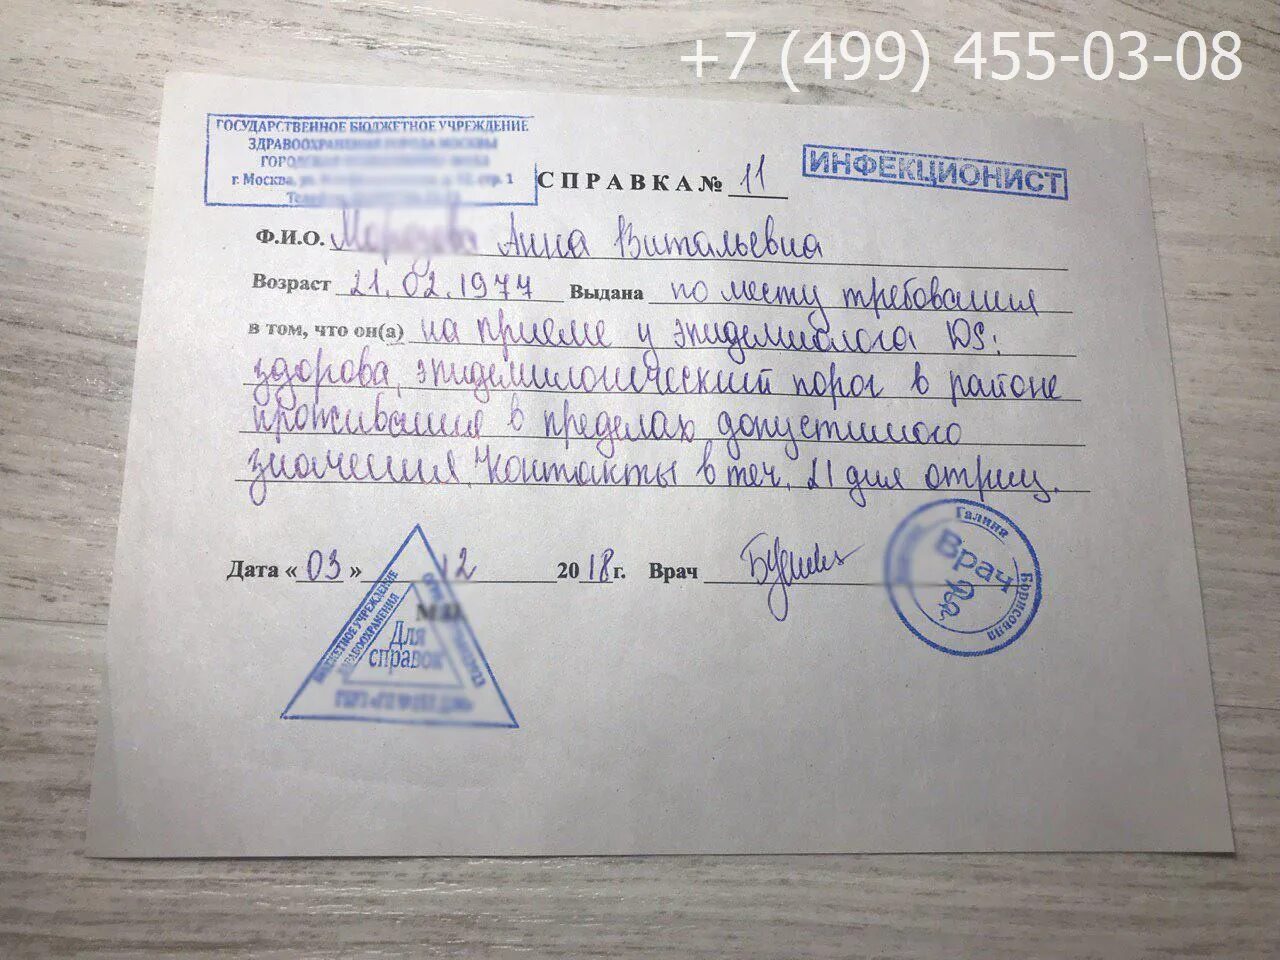 +7 (499) 455-03-08
ГОСУДАРСТВЕННОЕ БЮДЖЕТНОЕ УЧРЕЖДЕНИЕ
ЗДРАВООХРАНЕНИЯ ГОРОДА МОСКВЫ
г. Москва, ул. стр. 1
СПРАВКА № 11
ИНФЕКЦИОНИСТ
Ф.И.О. Анна Витальевна
Возраст 21.02.1977 Выдана по месту требования
в том, что он(а) на приеме у эпидемиолога DS:
здорова, эпидемилогический порог в районе
проживания в пределах допустимого
значения, Контакты в теч. 21 дня отриц.
Дата «03» 12 2018 г. Врач
М.П.
БЮДЖЕТНОЕ УЧРЕЖДЕНИЕ
ЗДРАВООХРАНЕНИЯ
Для
справок
Галина
Борисовна
Врач